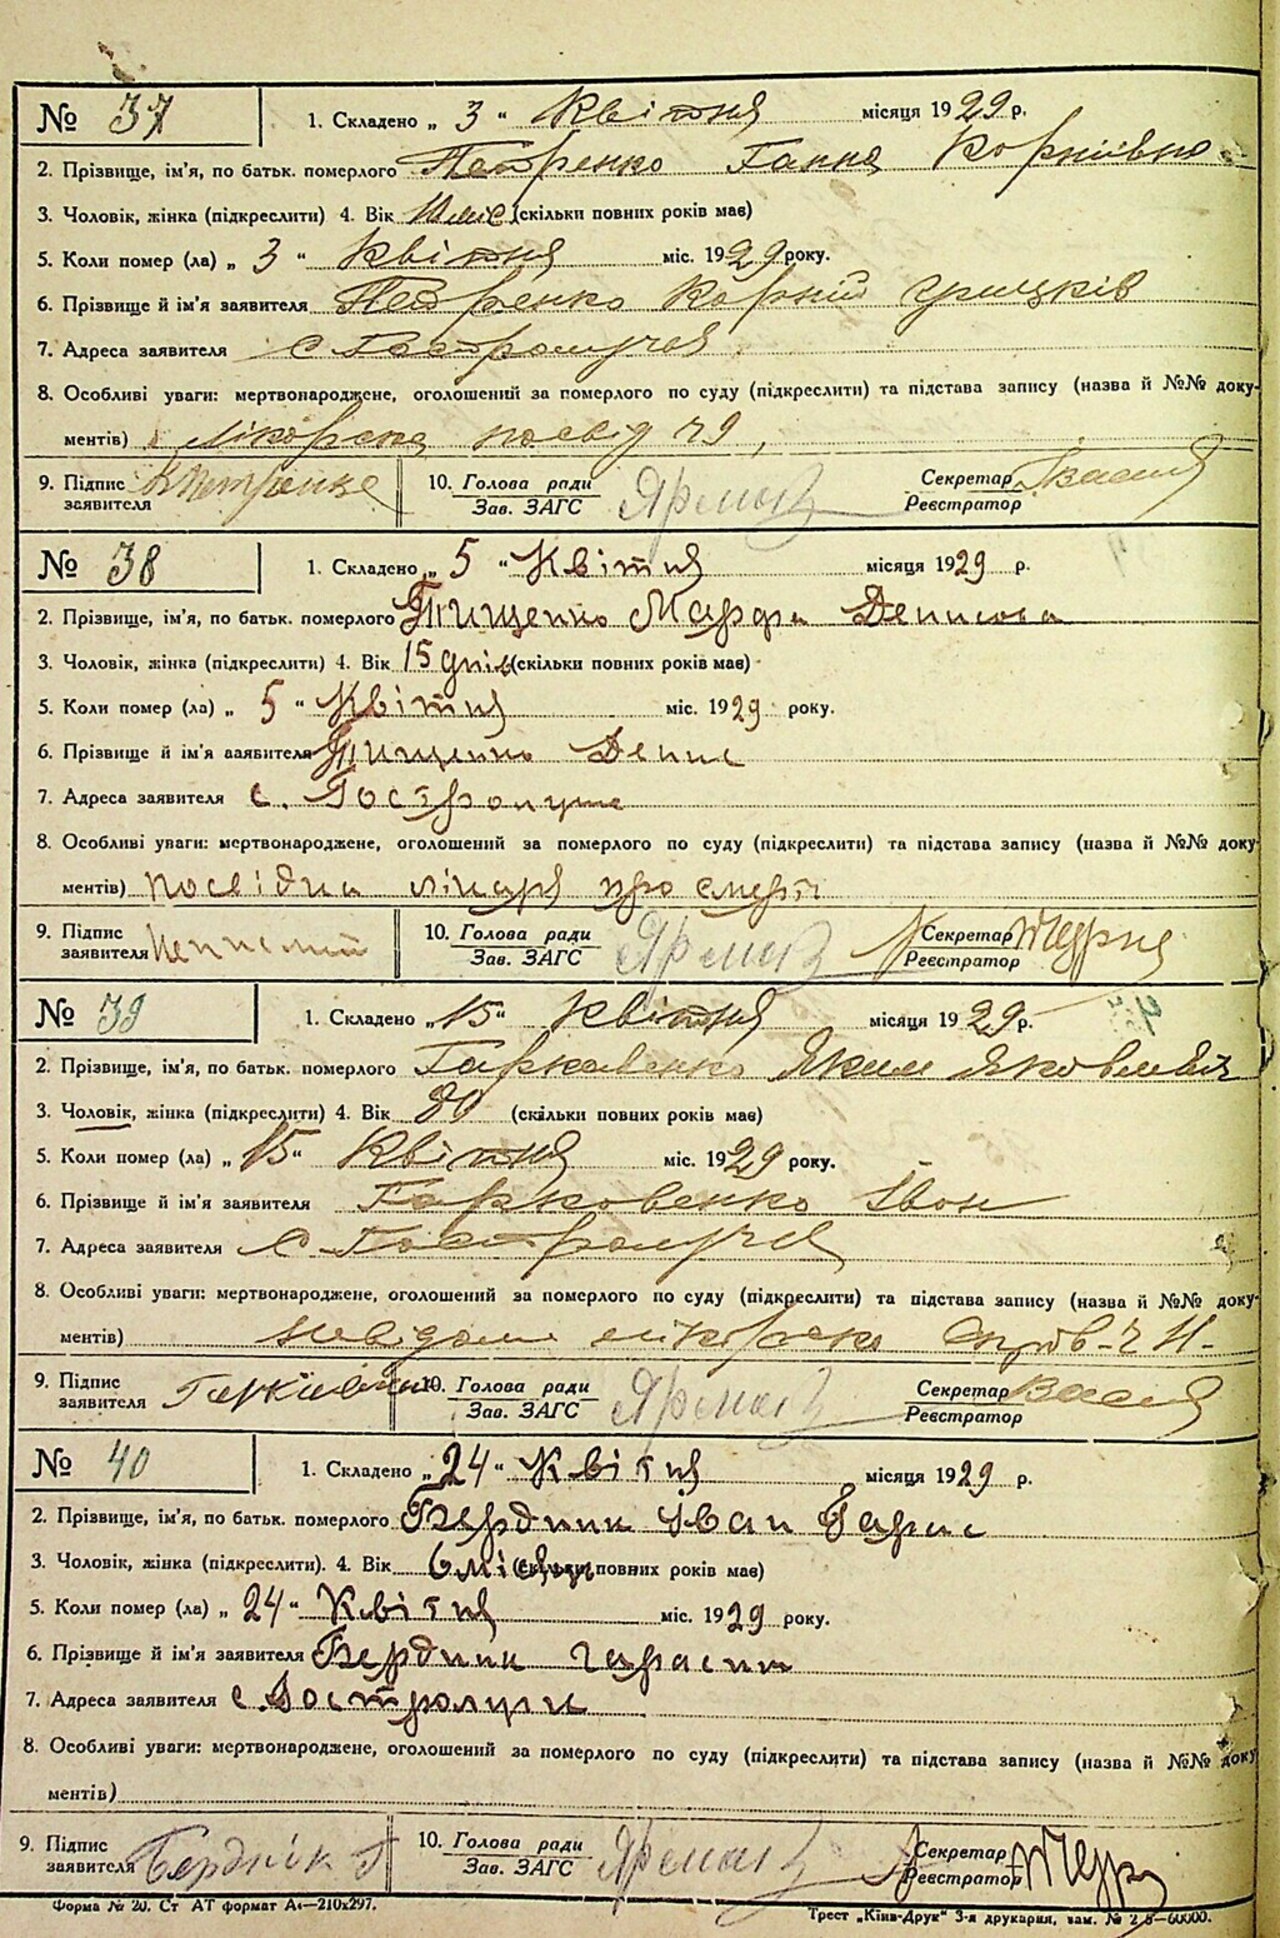 № 37 1. Складено „ 3 “ Квітня місяця 1929 р.
2. Прізвище, ім'я, по батьк. померлого Петренко Ганна Корніївна
3. Чоловік, жінка (підкреслити) 4. Вік (скільки повних років має)
5. Коли помер (ла) „ 3 “ Квітня міс. 1929 року.
6. Прізвище й ім'я заявителя Петренко Корній Грицків
7. Адреса заявителя с Гостролуччя
8. Особливі уваги: мертвонароджене, оголошений за померлого по суду (підкреслити) та підстава запису (назва й №№ доку-
ментів) Лікарска посвід 79,
9. Підпис заявителя К Петренко 10. Голова ради Зав. ЗАГС Ярмоль Секретар Реєстратор
№ 38 1. Складено „ 5 “ Квітня місяця 1929 р.
2. Прізвище, ім'я, по батьк. померлого Тищенко Марфа Денисова
3. Чоловік, жінка (підкреслити) 4. Вік 15 днів (скільки повних років має)
5. Коли помер (ла) „ 5 “ Квітня міс. 1929 року.
6. Прізвище й ім'я заявителя Тищенко Денис
7. Адреса заявителя с. Гостролуче
8. Особливі уваги: мертвонароджене, оголошений за померлого по суду (підкреслити) та підстава запису (назва й №№ доку-
ментів) посвідка лікаря про смерть
9. Підпис заявителя 10. Голова ради Зав. ЗАГС Секретар Реєстратор
№ 39 1. Складено „ 15 “ Квітня місяця 1929 р.
2. Прізвище, ім'я, по батьк. померлого Гаркавенко Яким Яковлевич
3. Чоловік, жінка (підкреслити) 4. Вік 80 (скільки повних років має)
5. Коли помер (ла) „ 15 “ Квітня міс. 1929 року.
6. Прізвище й ім'я заявителя Гарковенко Іван
7. Адреса заявителя с Гостролуччя
8. Особливі уваги: мертвонароджене, оголошений за померлого по суду (підкреслити) та підстава запису (назва й №№ доку-
ментів)
9. Підпис заявителя 10. Голова ради Зав. ЗАГС Секретар Реєстратор
№ 40 1. Складено „ 24 “ Квітня місяця 1929 р.
2. Прізвище, ім'я, по батьк. померлого Бердник Іван Гарас
3. Чоловік, жінка (підкреслити). 4. Вік 6 місяци (скільки повних років має)
5. Коли помер (ла) „ 24 “ Квітня міс. 1929 року.
6. Прізвище й ім'я заявителя Бердник Гарасим
7. Адреса заявителя с Гостролучи
8. Особливі уваги: мертвонароджене, оголошений за померлого по суду (підкреслити) та підстава запису (назва й №№ доку-
ментів)
9. Підпис заявителя Бердник Г 10. Голова ради Зав. ЗАГС Секретар Реєстратор
Форма № 20. Ст АТ формат А4—210х297. Трест „Київ-Друк“ 3-я друкарня, зам. № 60000.